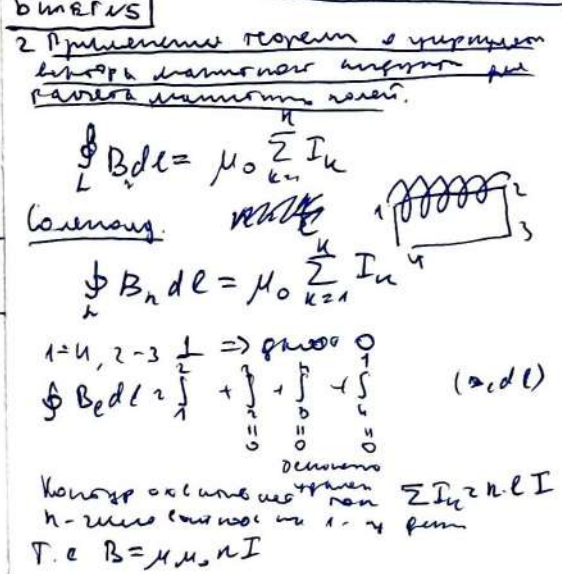 Билет N5
2 Применение теоремы о циркуляции
вектора магнитной индукции для
расчёта магнитных полей.
∮_L B_l dl = μ₀ Σ_{k=1}^{n} I_k
Соленоид.
1 2 3 4
∮_L B_n dl = μ₀ Σ_{k=1}^{n} I_k
1-4, 2-3 ⊥ => 0
∮ B_e dl = ∫_1^2 + ∫_2^3 + ∫_3^4 + ∫_4^1 (B_e dl)
0 0 0
Контур ток Σ I_k = n·l I
n - число витков на 1-
Т.е B = μμ₀nI